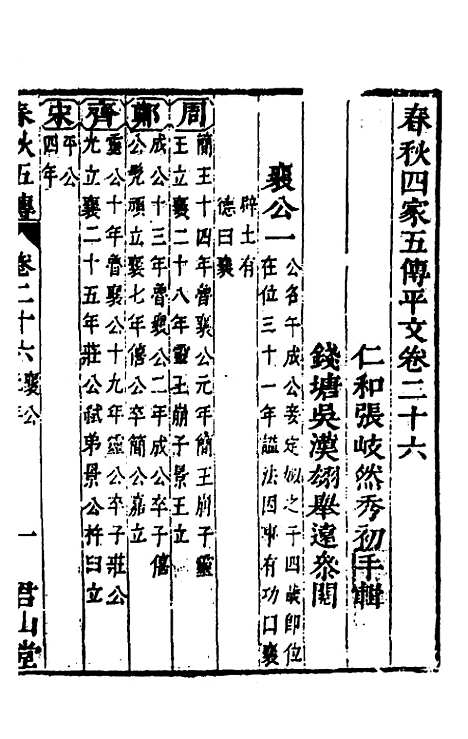 春秋四家五傳平文卷二十六
仁和張岐然秀初手輯
錢塘吳漢翊舉遠叅閱
襄公一
公名午成公妾定姒之子四歲即位
在位三十一年謚法因事有功曰襄
辟土有
德曰襄
周
簡王十四年魯襄公元年簡王崩子靈
王立襄二十八年靈王崩子景王立
鄭
成公十三年魯襄公二年成公卒子僖
公髡頑立襄七年僖公卒簡公嘉立
齊
靈公十年魯襄公十九年靈公卒子莊公
光立襄二十五年莊公弒弟景公杵臼立
宋
平公
四年
春秋五傳
卷二十六
襄公
一
君山堂